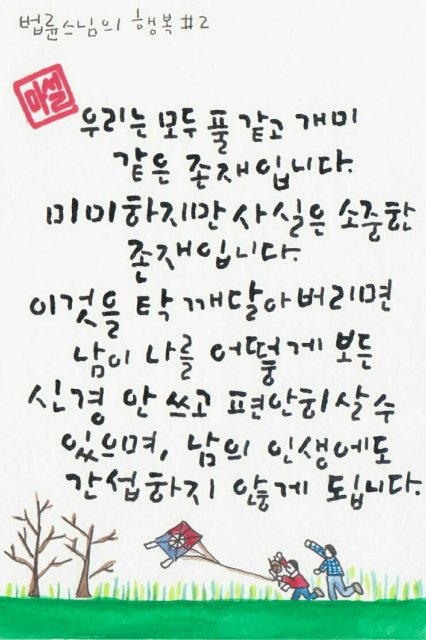 법륜스님의 행복 #2
마설
우리는 모두 풀 같고 개미
같은 존재입니다.
미미하지만 사실은 소중한
존재입니다.
이것을 탁 깨달아버리면
남이 나를 어떻게 보든
신경 안 쓰고 편안히 살 수
있으며, 남의 인생에도
간섭하지 않게 됩니다.